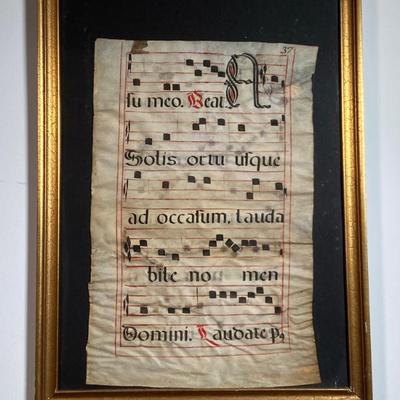 37
ſu meo. Beat. A
Solis ortu uſque
ad occaſum, lauda
bile no men
Domini. Laudate p9